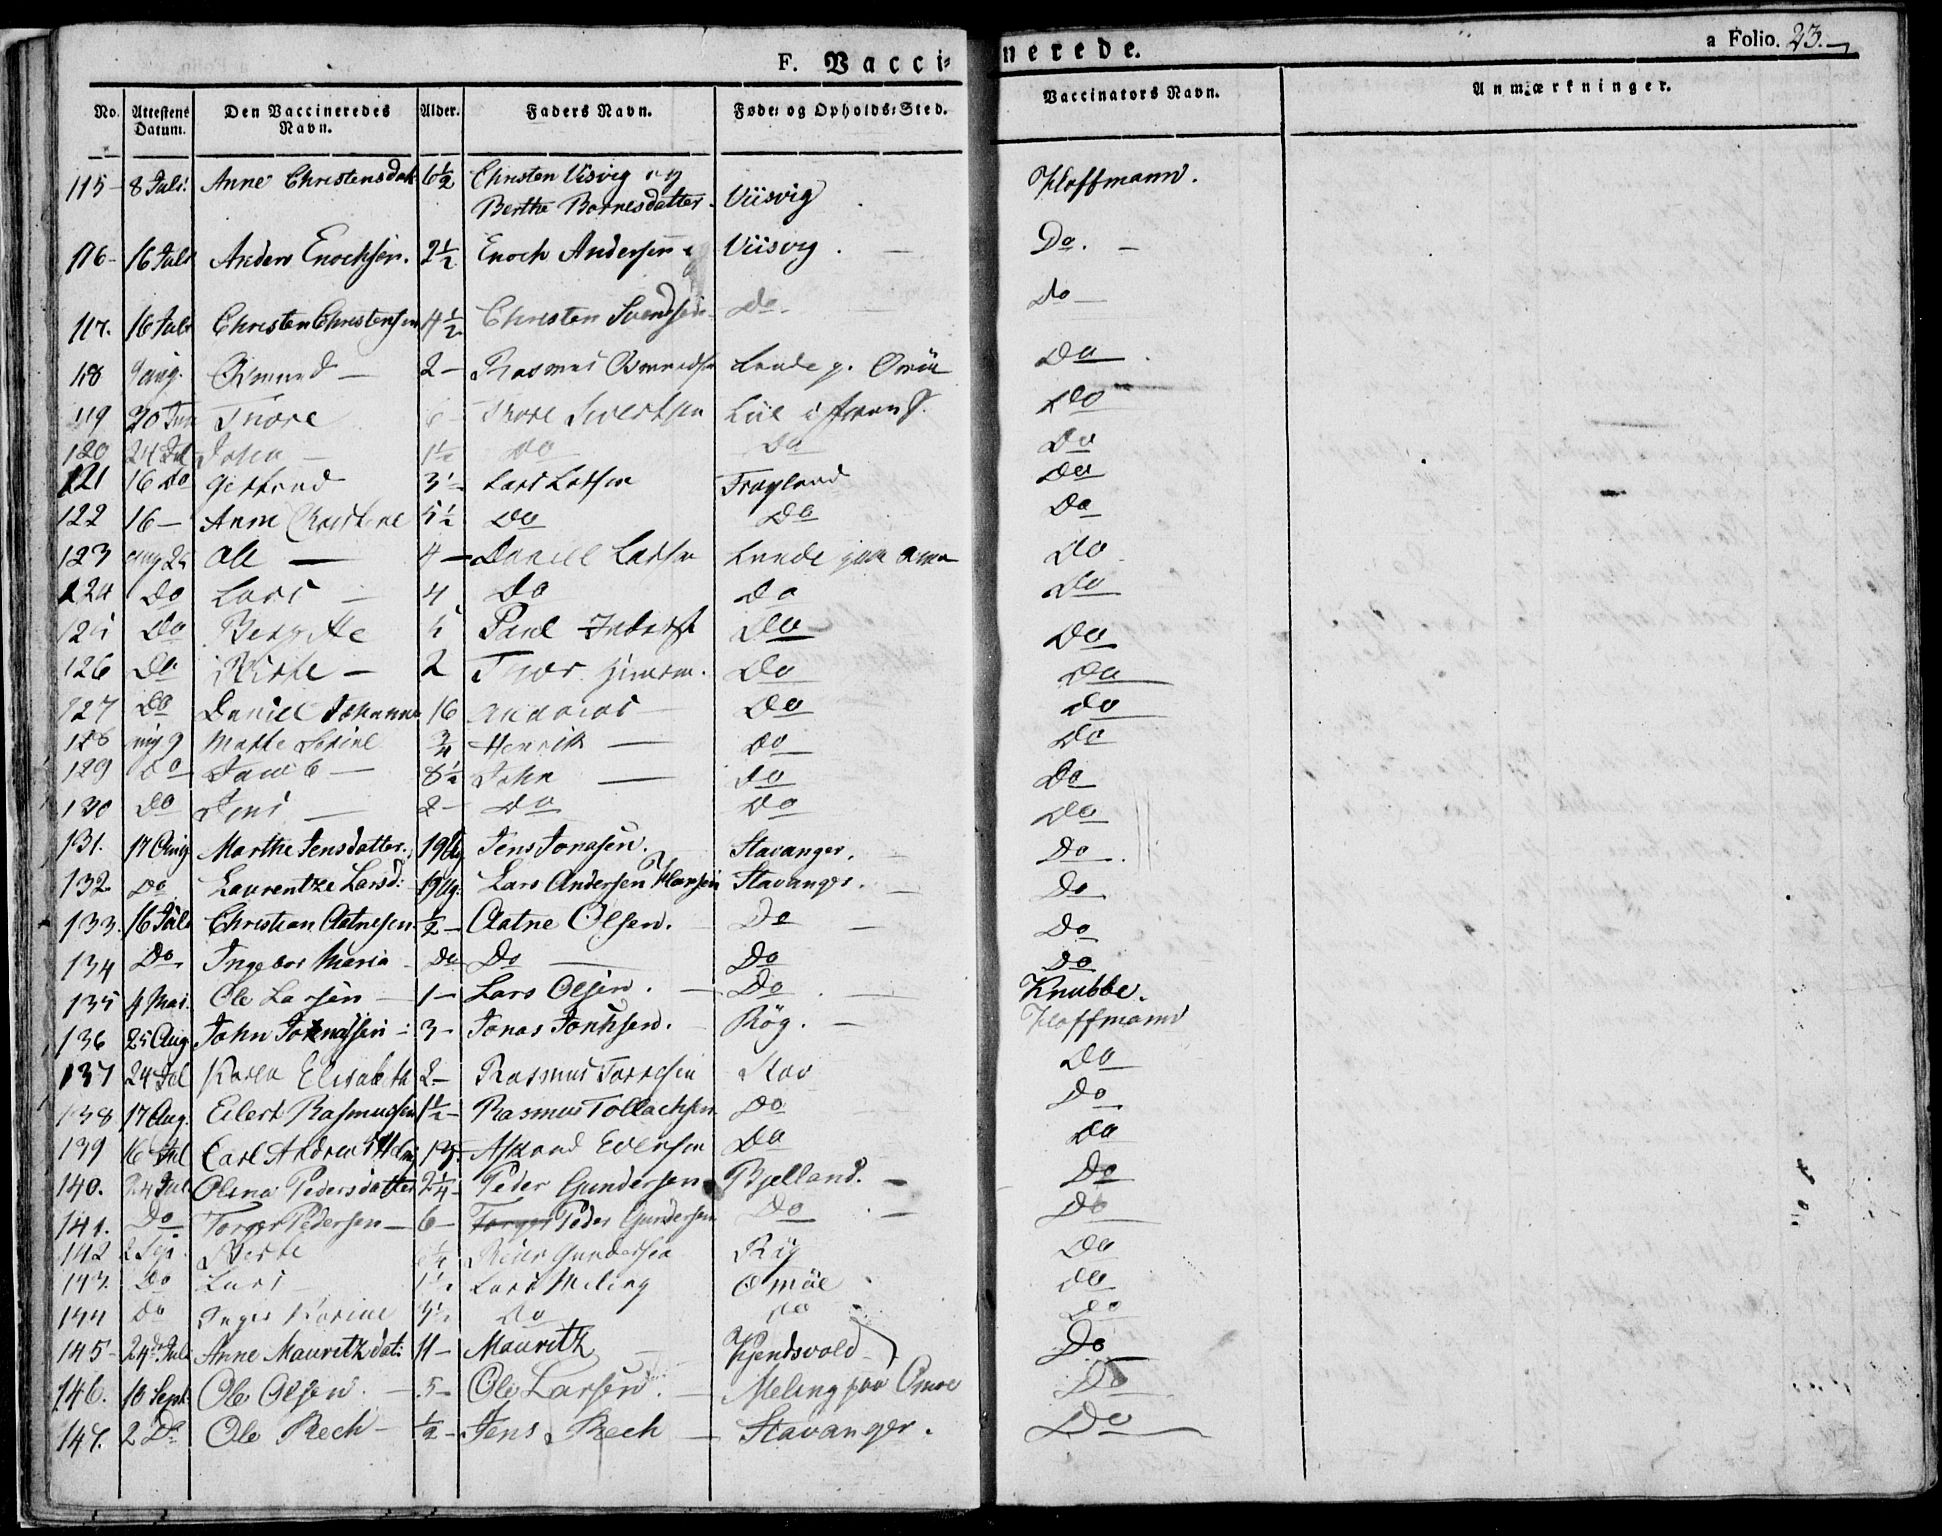 F. Vaccinerede. a Folio. 23.
No. Attestens Datum. Den Vaccineredes Navn. Alder. Faders Navn. Føde- og Opholds-Sted. Vaccinators Navn. Anmærkninger.
115 - 8 Juli. Anne Christensdatt 6½ Christen Visvig og Hoffmann.
Berthe Barnesdatter. Viisvig
116 - 16 Juli Anders Enochsen. 2½ Enoch Andersen Viisvig. Do. -
117. 16 Juli Christen Christensen 4½ Christen Svendsen Do. Do -
118 9 aug. Osmund - 2 - Rasmus Osmundsen Lunde p. Omöe Do
119 30 Tore Tore Sivertsen Do
120 24 Jul Johan - 1½ Do Do Do
121 16 Do Gertrud 3½ Lars Larsen Frøyland Do
122 16 - Anne Christine 5½ Do Do Do
123 aug 25 Ole - 4 - Daniel Larsen Lunde paa Omø Do
124 Do Lars - 4 Do Do Do
125 Do Bergitte 5 Paul Do Do
126 Do Berte - 2 Thor Do Do
127 Do Daniel Johannes 16 Andreas Do Do
128 aug 9 Marte Serine ¾ Henrik - Do Do
129 Do Jacob - 8½ John - Do Do
130 Do Jens - 2 - Do Do Do
131. 17 Aug Marthe Jensdatter. 19 Ug Jens Jonasen. Stavanger. Do.
132 Do Laurentze Larsd: 19 Ug. Lars Andersen Hansen Stavanger. Do
133. 16 Juli Christian Aatnesen ½ - Aatne Olsen. Do Do
134 Do Ingebor Maria Do Do - Do Do
135 4 Mai. Ole Larsen - 1 - Lars Olsen. Do Knubbe.
136 25 Aug John Jonassen - 3 - Jonas Jonssen. Røg. - Hoffmann
137 24 Jul Karen Elisabeth 2 - Rasmus Torresen Stav Do
138 17 Aug. Eilert Rasmussen 1½ - Rasmus Tollachsen Do Do
139 16 Jul Carl Andreas Do Do
140. 24 Jul Olena Pedersdatter 2¼ - Peder Gundersen Bjelland. - Do
141. Do Torger Pedersen - 6 - Torger Peder Gundersen Do - Do
142 2 Sep. Berte Reier Gundersen Røg Do
143. Do Lars 1½ Lars Meling Omöe Do
144 Do Inger Karine 3½ Do Do Do
145 - 24de Juli Anne Mauritzdat: 11 - Mauritz Hendsvold Do
146. 10 Sept. Ole Olsen. - 5 - Ole Larsen. - Meling paa Omöe Do
147. 2 Do Ole Rech - ½ - Jens Rech - Stavanger. Do